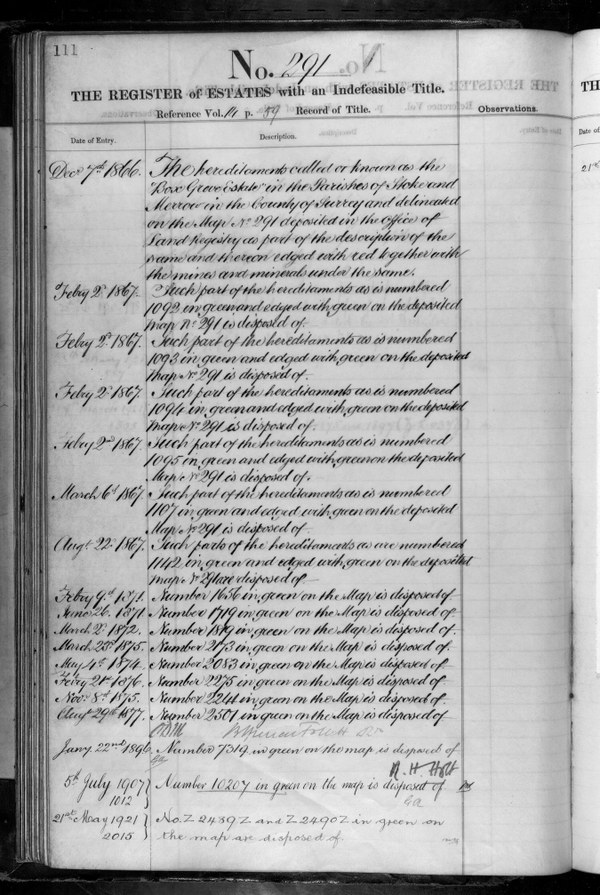 111
No. 291
THE REGISTER of ESTATES with an Indefeasible Title.
Reference Vol. 14 p. 59 Record of Title.
Observations.
Date of Entry. Description.
Decr 7th 1866. The hereditaments called or known as the
"Box Grove Estate" in the Parishes of Stoke and
Merrow in the County of Surrey and delineated
on the Map No 291 deposited in the Office of
Land Registry as part of the description of the
same and thereon edged with red together with
the mines and minerals under the same.
Febry 2d 1867. Such part of the hereditaments as is numbered
1092 in green and edged with green on the deposited
Map No 291 is disposed of.
Febry 2d 1867. Such part of the hereditaments as is numbered
1093 in green and edged with green on the deposited
Map No 291 is disposed of.
Febry 2d 1867. Such part of the hereditaments as is numbered
1094 in green and edged with green on the deposited
Map No 291 is disposed of.
Febry 2nd 1867. Such part of the hereditaments as is numbered
1095 in green and edged with green on the deposited
Map No 291 is disposed of.
March 6th 1867. Such part of the hereditaments as is numbered
1107 in green and edged with green on the deposited
Map No 291 is disposed of
Augt 22d 1867. Such parts of the hereditaments as are numbered
1142 in green and edged with green on the deposited
Map No 291 are disposed of
Febry 9th 1871. Number 1656 in green on the Map is disposed of
June 26. 1871. Number 1719 in green on the Map is disposed of.
March 2d 1872. Number 1819 in green on the Map is disposed of.
March 23rd 1875. Number 2173 in green on the Map is disposed of.
May 4th 1874. Number 2083 in green on the Map is disposed of.
Febry 21st 1876. Number 2275 in green on the Map is disposed of.
Novr 8th 1875. Number 2241 in green on the Map is disposed of.
Augt 29th 1877. Number 2501 in green on the Map is disposed of
Jany 22nd 1896. Number 7319 in green on the map is disposed of
R. H. Holt
5th July 1907 Number 10207 in green on the map is disposed of
1012
21st May 1921 No. Z 2489 Z and Z 2490 Z in green on
2015 the map are disposed of